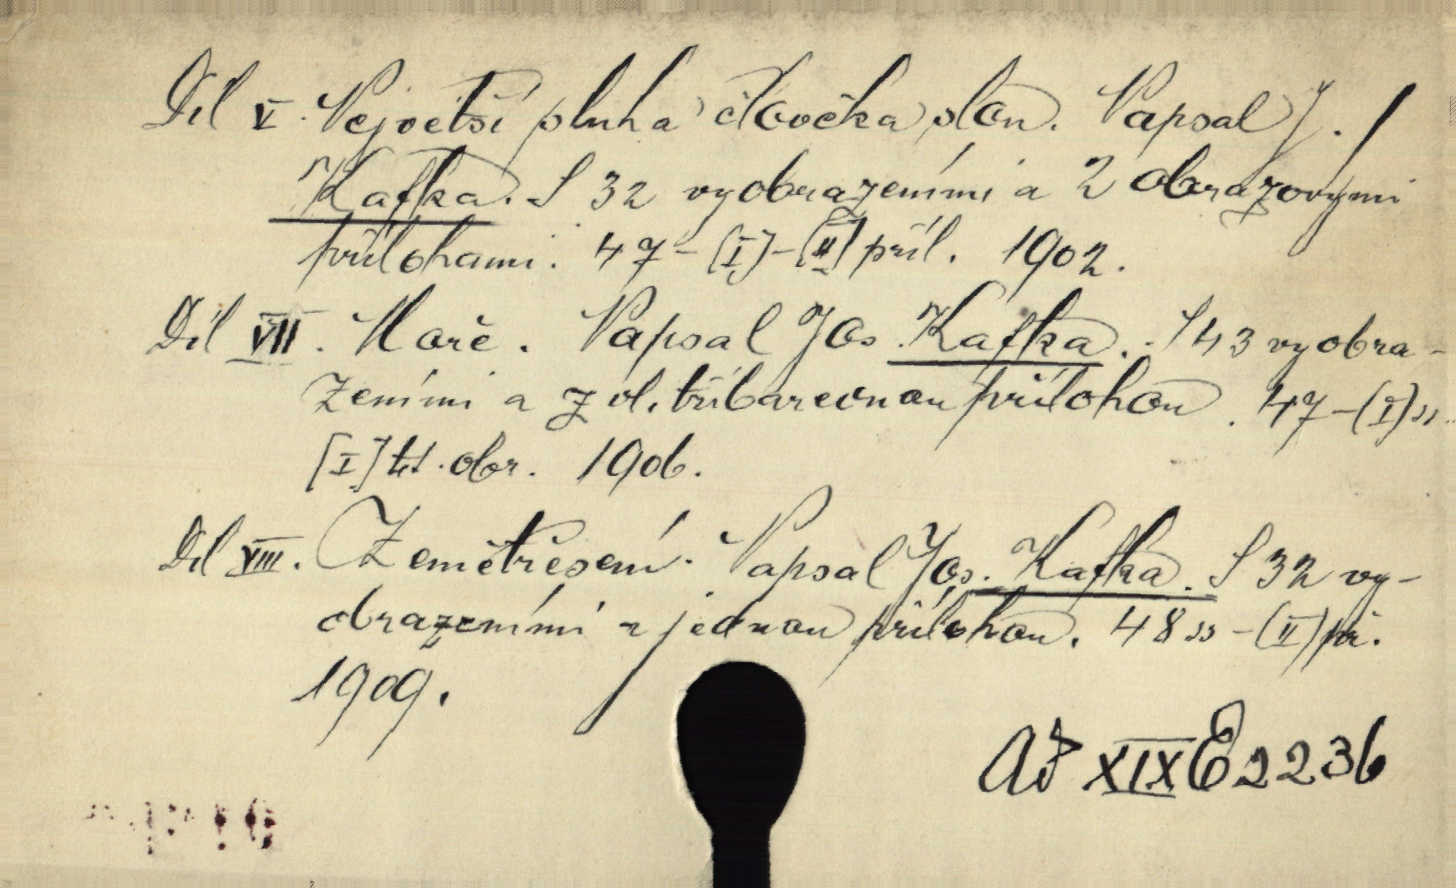 Díl V. Největší sluha člověka slon. Napsal J.
Kafka. S 32 vyobrazeními a 2 obrazovými
přílohami. 47-[I]-[II] příl. 1902.
Díl VII. Moře. Napsal Jos. Kafka. S 43 vyobra-
zeními a zvl. tříbarevnou přílohou. 47-[I] ss.
[I] obr. 1906.
Díl VIII. Zemětřesení. Napsal Jos. Kafka. S 32 vy-
obrazeními a jednou přílohou. 48 ss-[II] př.
1909.
XIX E 2236